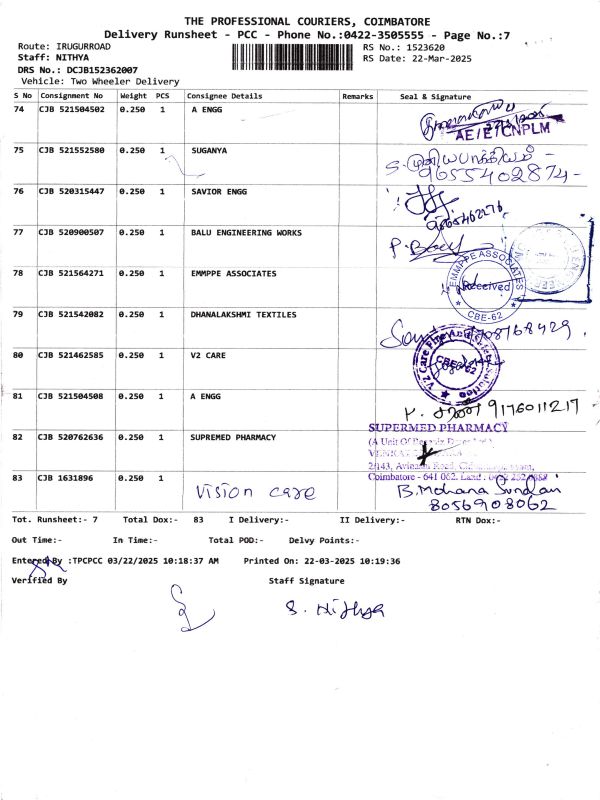 THE PROFESSIONAL COURIERS, COIMBATORE
Delivery Runsheet - PCC - Phone No.:0422-3505555 - Page No.:7
Route: IRUGURROAD RS No.: 1523620
Staff: NITHYA RS Date: 22-Mar-2025
DRS No.: DCJB152362007
Vehicle: Two Wheeler Delivery
S No Consignment No Weight PCS Consignee Details Remarks Seal & Signature
74 CJB 521504502 0.250 1 A ENGG
AE/E/CNPLM
75 CJB 521552580 0.250 1 SUGANYA
9655402874-
76 CJB 520315447 0.250 1 SAVIOR ENGG
9865462276
77 CJB 520900507 0.250 1 BALU ENGINEERING WORKS
78 CJB 521564271 0.250 1 EMMPPE ASSOCIATES
EMMPPE ASSOCIATES
Received
CBE-62
79 CJB 521542082 0.250 1 DHANALAKSHMI TEXTILES
80 CJB 521462585 0.250 1 V2 CARE
CBE-62
81 CJB 521504508 0.250 1 A ENGG
9176011217-
82 CJB 520762636 0.250 1 SUPREMED PHARMACY
SUPERMED PHARMACY
(A Unit Of
Coimbatore - 641 062.
83 CJB 1631896 0.250 1
Vision care
B. Mohana Sundari
8056908062
Tot. Runsheet:- 7 Total Dox:- 83 I Delivery:- II Delivery:- RTN Dox:-
Out Time:- In Time:- Total POD:- Delvy Points:-
Entered By :TPCPCC 03/22/2025 10:18:37 AM Printed On: 22-03-2025 10:19:36
Verified By Staff Signature
S. Nithya